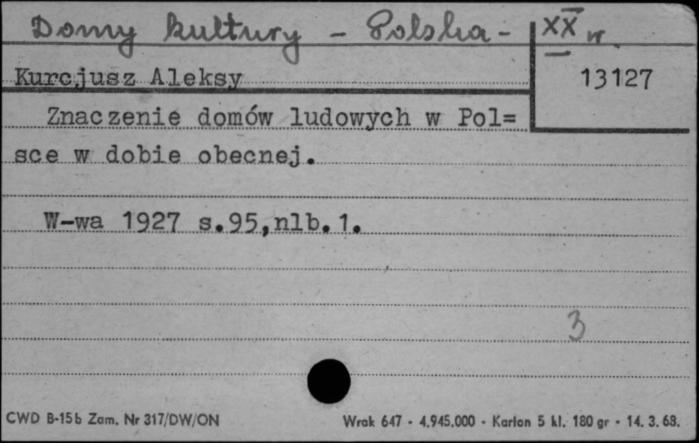 Domy kultury - Polska - XX w.
Kurcjusz Aleksy
13127
Znaczenie domów ludowych w Pol=
sce w dobie obecnej.
W-wa 1927 s.95,nlb.1.
3
CWD B-15b Zam. Nr 317/DW/ON
Wrak 647 - 4.945.000 - Karton 5 kl. 180 gr - 14. 3. 68.